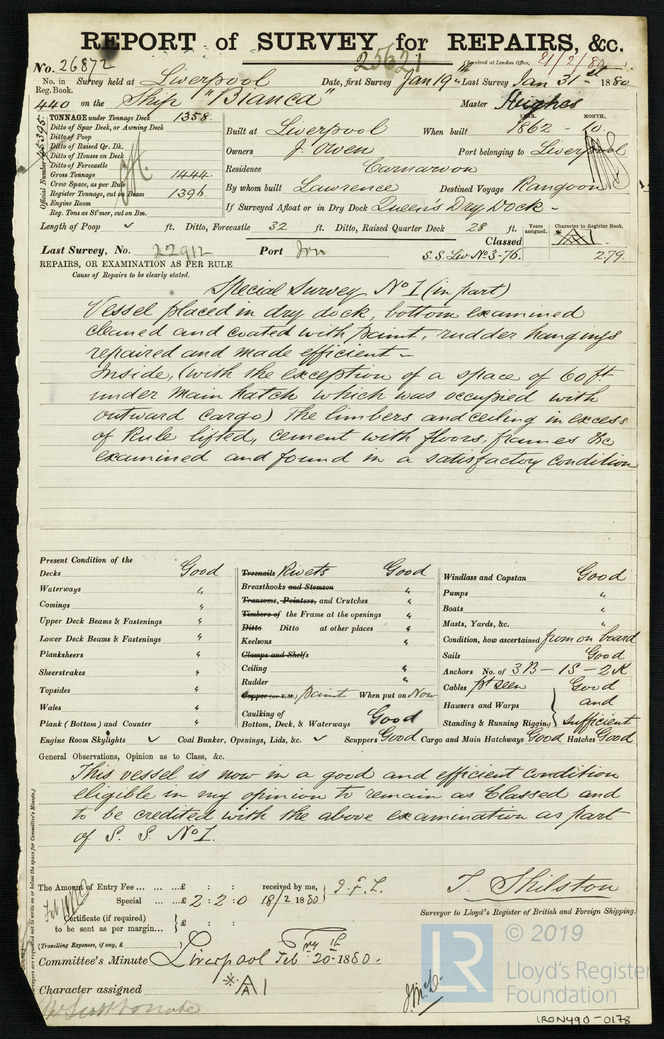 REPORT of SURVEY for REPAIRS, &c.
No. 26872
25621
Received at London Office, 21/2/80
No. in Reg. Book. 440
Survey held at Liverpool Date, first Survey Jan 19th Last Survey Jan 31st 1880
on the Ship "Bianca" Master Hughes
TONNAGE under Tonnage Deck 1358.
Ditto of Spar Deck, or Awning Deck
Ditto of Poop
Ditto of Raised Qr. Dk.
Ditto of Houses on Deck
Ditto of Forecastle
Gross Tonnage 1444.
Crew Space, as per Rule
Register Tonnage, cut on Beam 1396.
Engine Room
Reg. Tons as St'mer, cut on Bm.
Official Number
YEAR. MONTH.
Built at Liverpool When built 1862 - 10.
Owners J. Owen Port belonging to Liverpool
Residence Carnarvon
By whom built Lawrence Destined Voyage Rangoon
If Surveyed Afloat or in Dry Dock Queen's Dry Dock -
Length of Poop ✓ ft. Ditto, Forecastle 32 ft. Ditto, Raised Quarter Deck 28 ft.
Years assigned. Character in Register Book.
Last Survey, No. 22912 Port Irn Classed S.S. Liv No 3-76.
2.79.
REPAIRS, OR EXAMINATION AS PER RULE
Cause of Repairs to be clearly stated.
Special Survey No 1 (in part)
Vessel placed in dry dock, bottom examined
cleaned and coated with paint, rudder hangings
repaired and made efficient -
Inside, (with the exception of a space of 60 ft.
under main hatch which was occupied with
outward cargo) the limbers and ceiling in excess
of Rule lifted, cement with floors, frames &c
examined and found in a satisfactory condition
Present Condition of the
Decks Good
Waterways "
Comings "
Upper Deck Beams & Fastenings "
Lower Deck Beams & Fastenings "
Planksheers "
Sheerstrakes "
Topsides "
Wales "
Plank (Bottom) and Counter "
Treenails Rivets Good
Breasthooks and Stemson "
Transoms, Pointers, and Crutches "
Timbers of the Frame at the openings "
Ditto Ditto at other places "
Keelsons "
Clamps and Shelfs
Ceiling "
Rudder "
Copper (or Y.M.) Paint When put on Now
Caulking of
Bottom, Deck, & Waterways Good
Windlass and Capstan Good
Pumps "
Boats "
Masts, Yards, &c. "
Condition, how ascertained from on board
Sails Good
Anchors No. of 3B - 1S - 2K
Cables pt seen Good
Hawsers and Warps and
Standing & Running Rigging sufficient
Engine Room Skylights ✓ Coal Bunker, Openings, Lids, &c. ✓ Scuppers Good Cargo and Main Hatchways Good Hatches Good
General Observations, Opinion as to Class, &c.
This vessel is now in a good and efficient condition
eligible in my opinion to remain as Classed and
to be credited with the above examination as part
of S. S. No 1.
The Amount of Entry Fee ... ... ...£ : : received by me, J.F.L.
Special ... ...£ 2 : 2 : 0 18/2 1880
Certificate (if required) to be sent as per margin... £ : :
(Travelling Expenses, if any, £ )
T. Shilston
Surveyor to Lloyd's Register of British and Foreign Shipping.
Committee's Minute Liverpool Feb 20-1880.
Character assigned A 1
© 2019
LR
Lloyd's Register
Foundation
IRON490-0178